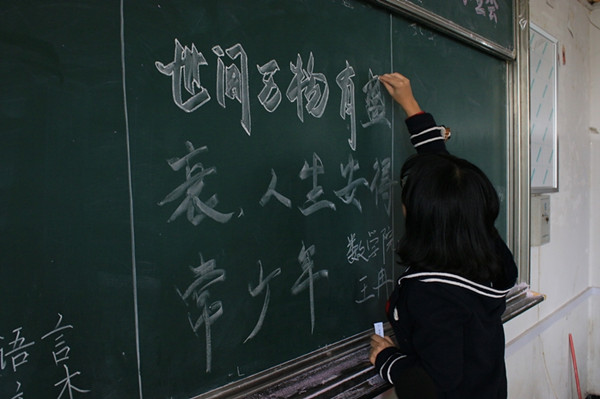 世间万物有盛
衰,人生安得
常少年
数学院
语言